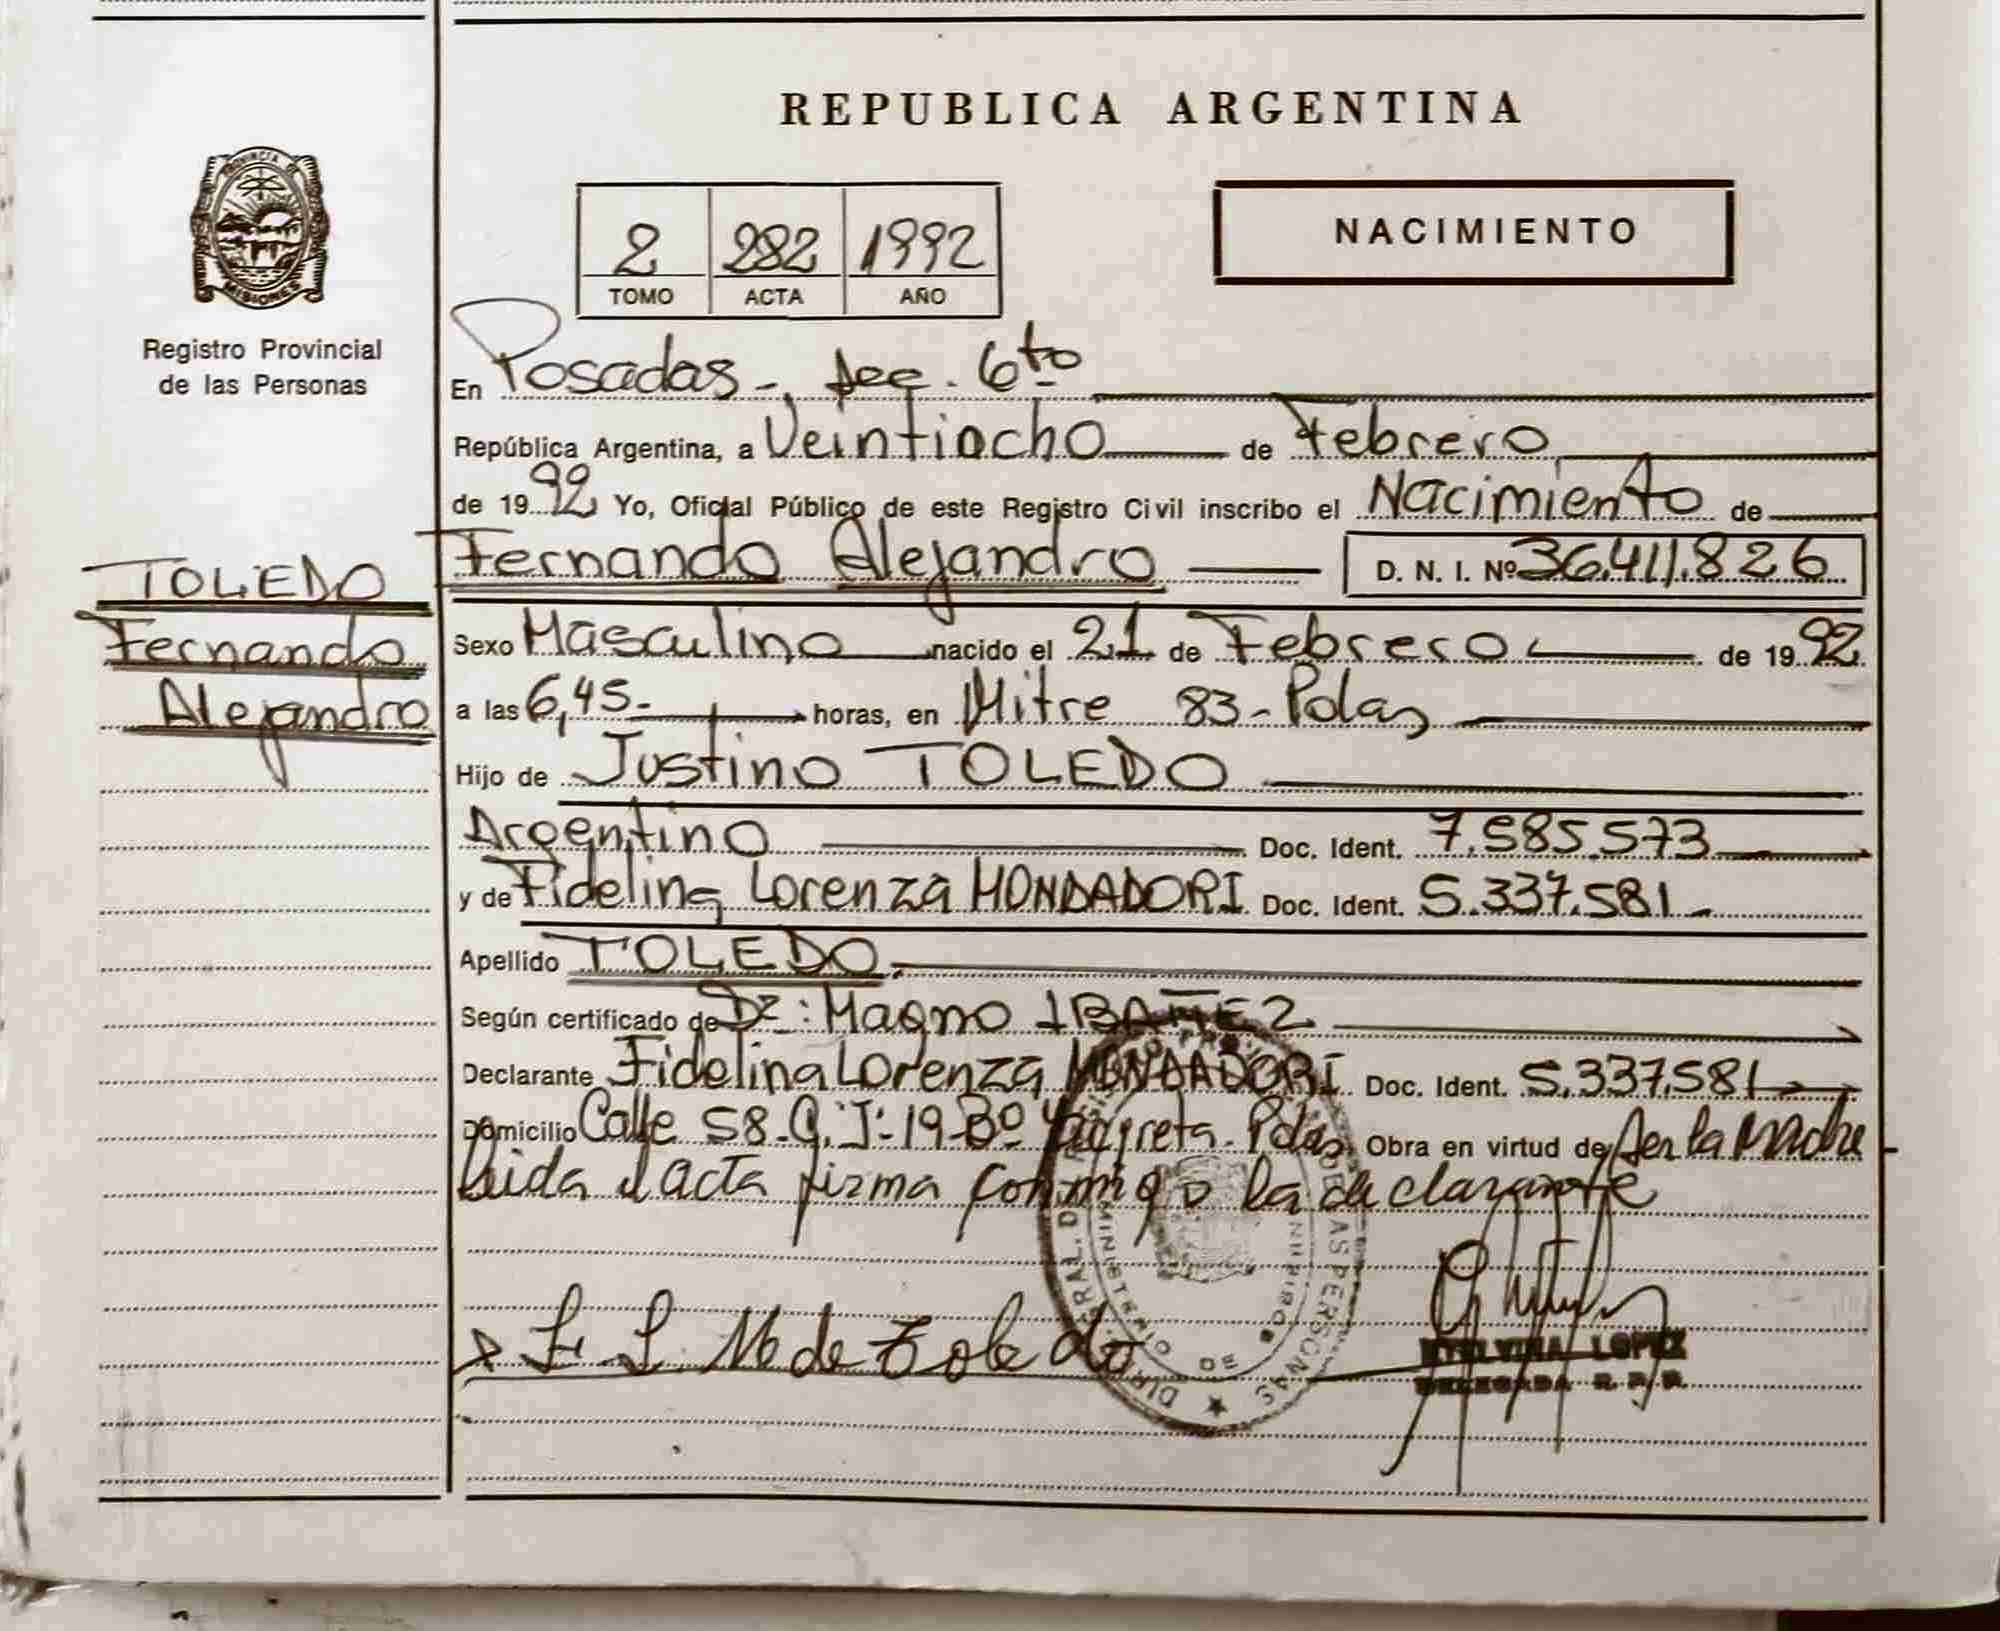 REPUBLICA ARGENTINA
NACIMIENTO
2 282 1992
TOMO ACTA AÑO
PROVINCIA DE
MISIONES
Registro Provincial
de las Personas
TOLEDO
Fernando
Alejandro
En Posadas - Sec. 6to
República Argentina, a Veintiocho de Febrero
de 1992 Yo, Oficial Público de este Registro Civil inscribo el Nacimiento de
Fernando Alejandro D. N. I. Nº 36.411.826
Sexo Masculino nacido el 21 de Febrero de 1992
a las 6,45- horas, en Mitre 83 - Pdas
Hijo de Justino TOLEDO
Argentino Doc. Ident. 7.585.573
y de Fidelina Lorenza MONDADORI Doc. Ident. 5.337.581-
Apellido TOLEDO
Según certificado de Dr: Magno IBAÑEZ
Declarante Fidelina Lorenza MONDADORI Doc. Ident. 5.337.581
Domicilio Calle 58-C. J-19-Bº Yacyreta - Pdas Obra en virtud de Ser la Madre
Leida el acta firma conmigo la declarante
F L M de Toledo
ETELVINA LOPEZ
DELEGADA R. P. P.
DIR. GRAL. DE REGISTRO PROVINCIAL DE LAS PERSONAS
MINISTERIO DE GOBIERNO